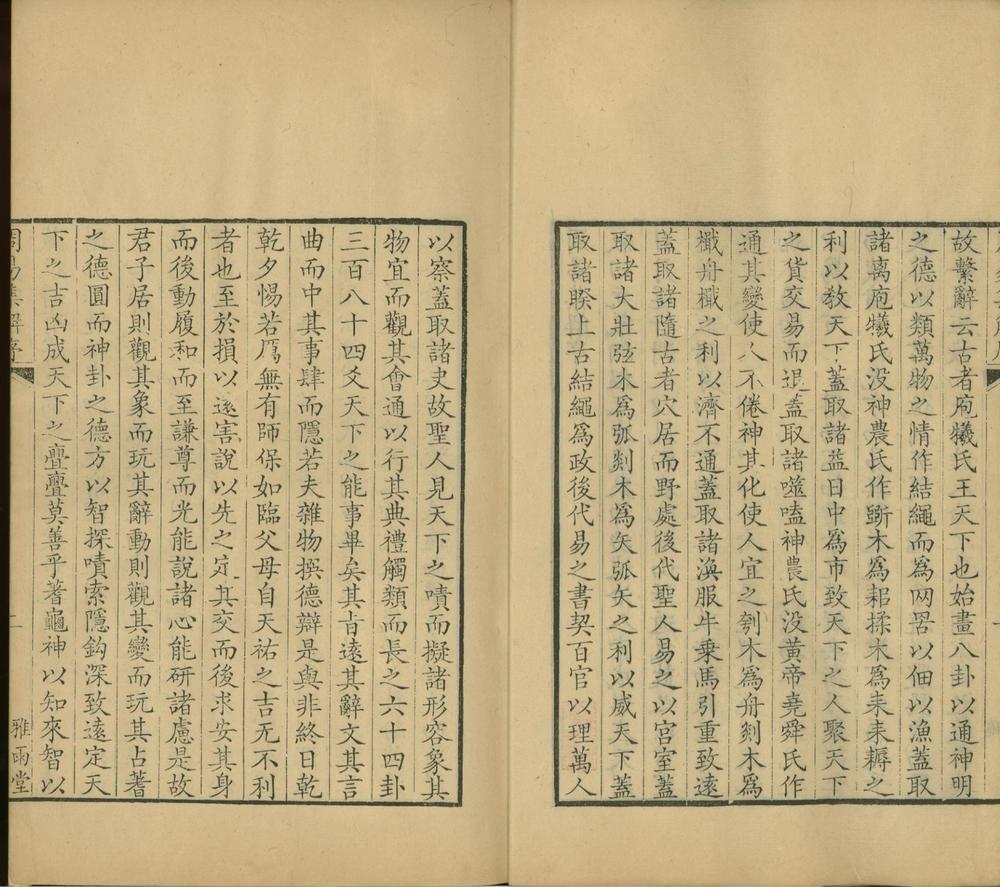 故繫辭云古者庖犧氏王天下也始畫八卦以通神明
之德以類萬物之情作結繩而爲网罟以佃以漁蓋取
諸离庖犧氏没神農氏作斲木爲耜揉木爲耒耒耨之
利以敎天下蓋取諸益日中爲市致天下之人聚天下
之貨交易而退蓋取諸噬嗑神農氏没黄帝堯舜氏作
通其變使人不倦神其化使人宜之刳木爲舟剡木爲
檝舟檝之利以濟不通蓋取諸渙服牛乘馬引重致遠
蓋取諸隨古者穴居而野處後代聖人易之以宫室蓋
取諸大壯弦木爲弧剡木爲矢弧矢之利以威天下蓋
取諸睽上古結繩爲政後代易之書契百官以理萬人
以察蓋取諸史故聖人見天下之嘖而擬諸形容象其
物宜而觀其會通以行其典禮觸類而長之六十四卦
三百八十四爻天下之能事畢矣其旨遠其辭文其言
曲而中其事肆而隱若夫雜物撰德辯是與非終日乾
乾夕惕若厲無有師保如臨父母自天祐之吉无不利
者也至於損以遠害說以先之定其交而後求安其身
而後動履和而至謙尊而光能說諸心能研諸慮是故
君子居則觀其象而玩其辭動則觀其變而玩其占蓍
之德圓而神卦之德方以智探嘖索隱鈎深致遠定天
下之吉凶成天下之亹亹莫善乎蓍龜神以知來智以
周易集解序 二 雅雨堂